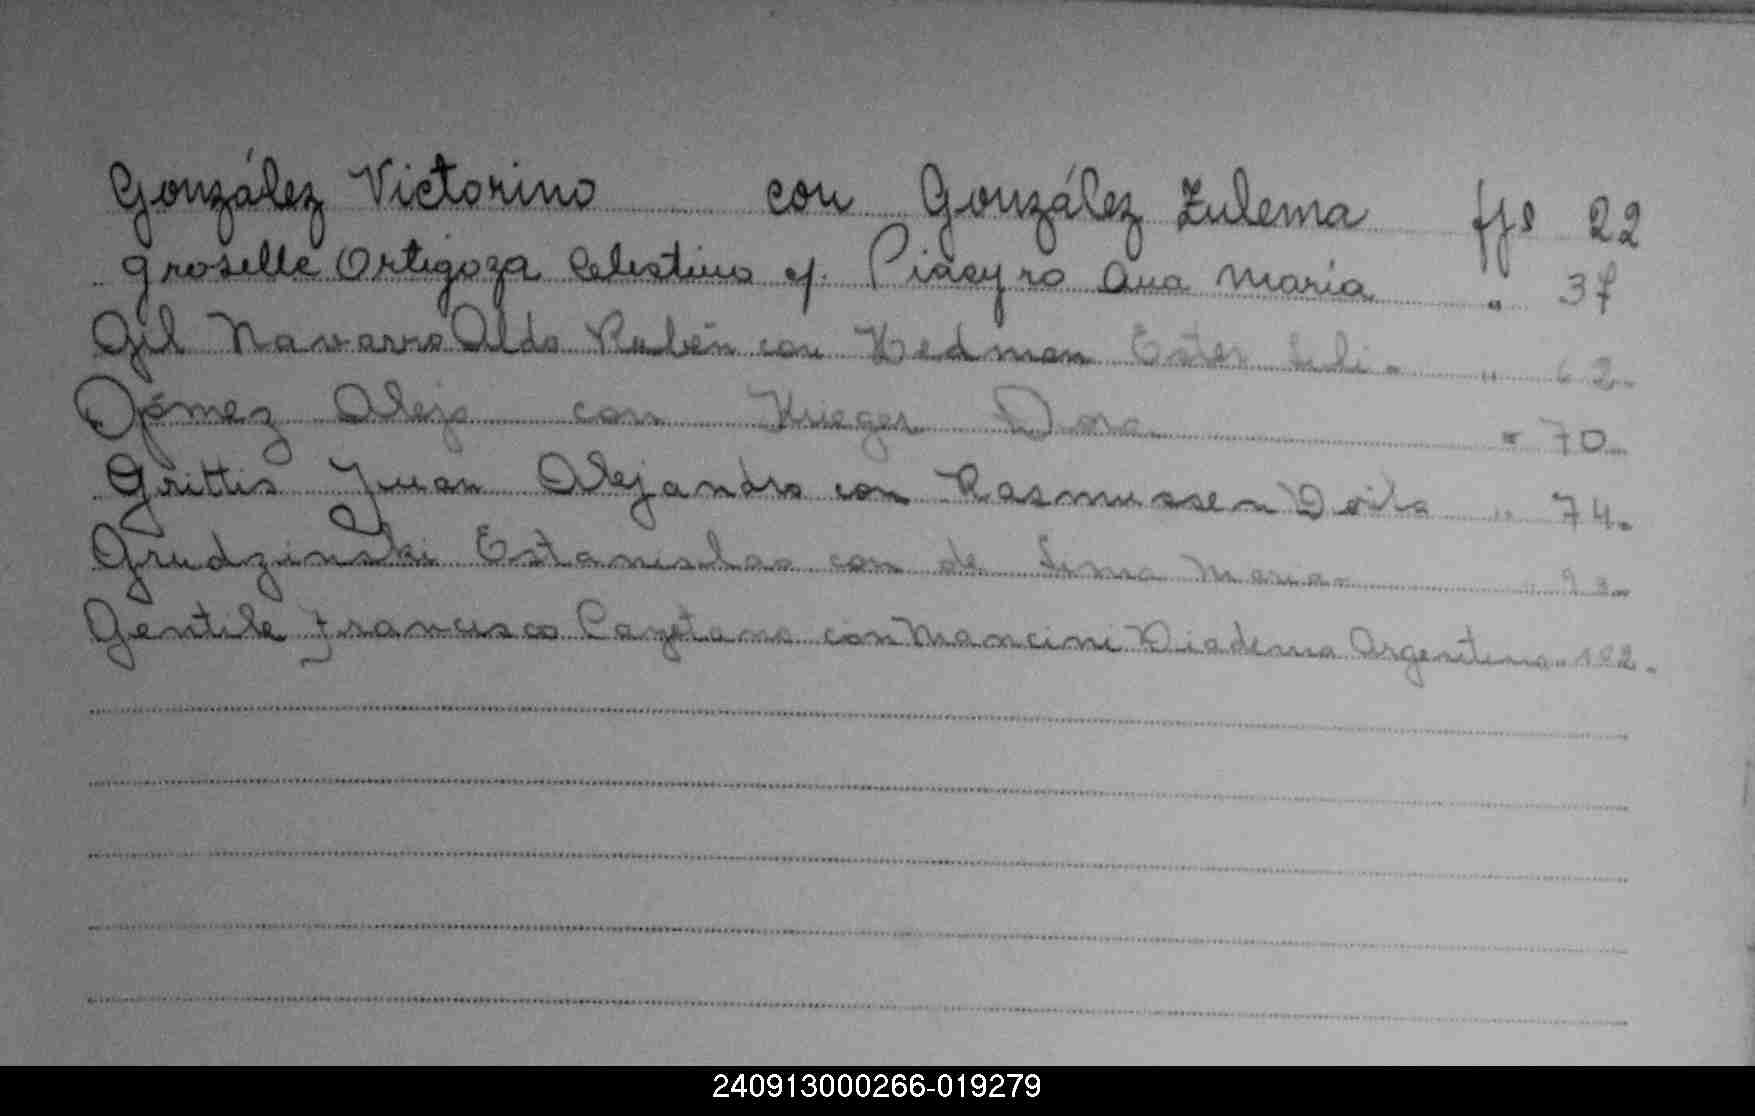 González Victorino con González Zulema fjs 22
Groselle Ortigoza Celestino c/. Piñeyro Ana María " 37
Gil Navarro Aldo Rubén con Hedman Ester Lili - " 62.-
Gómez Alejo con Krieger Dora " 70.-
Grittis Juan Alejandro con Rasmussen Doila " 74.-
Grudzinski Estanislao con de Lima Maria "
Gentile Francisco Cayetano con Mancini Diadema Argentina " 102.-
240913000266-019279